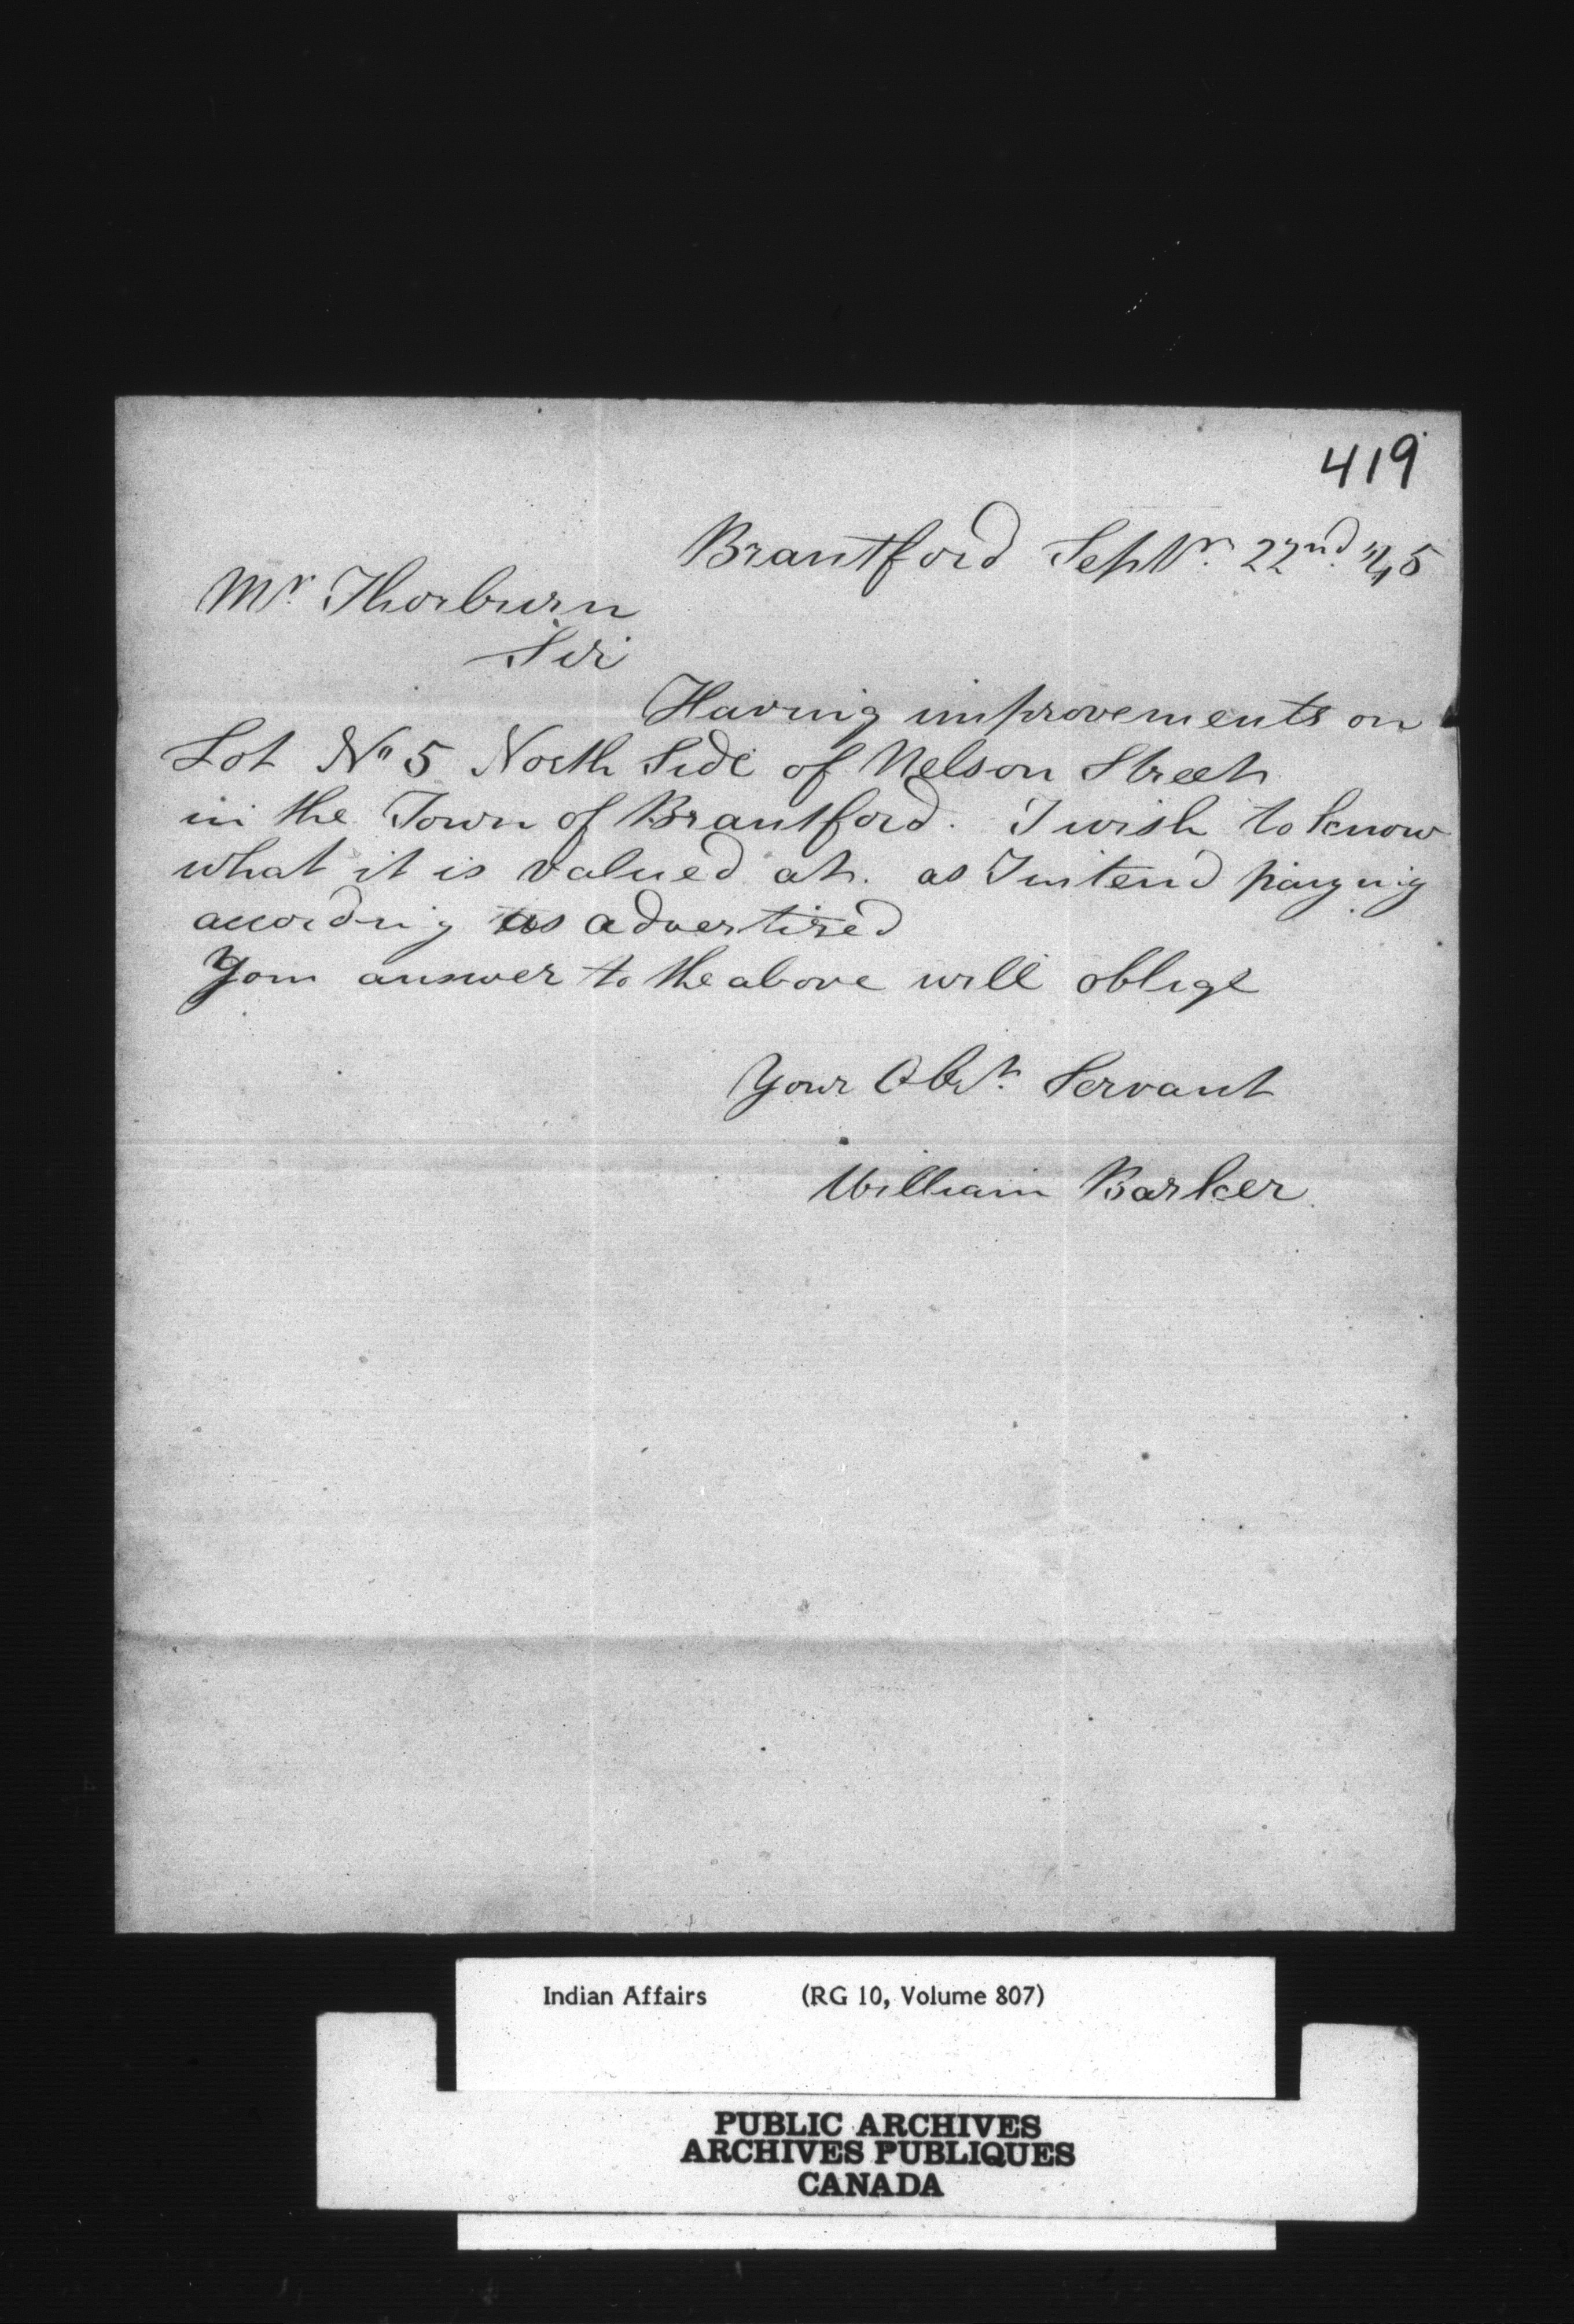 419
Brantford Septr. 22nd. 45
Mr. Thorburn
Sir
Having improvements on
Lot No 5 North Side of Nelson Street
in the Town of Brantford. I wish to know
what it is valued at. as I intend paying
according as advertised
Your answer to the above will oblige
Your Obt. Servant
William Barker.
Indian Affairs (RG 10, Volume 807)
PUBLIC ARCHIVES
ARCHIVES PUBLIQUES
CANADA